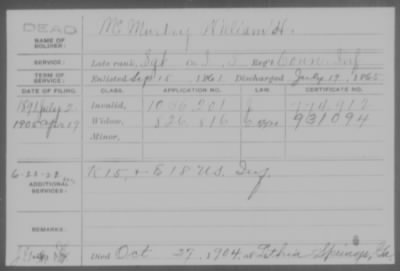 DEAD
NAME OF SOLDIER: McMurtry William H.
SERVICE: Late rank, Sgt Co. I, 5 Reg't Conn Inf
TERM OF SERVICE: Enlisted Sep 15 1861 Discharged July 19, 1865
DATE OF FILING. CLASS. APPLICATION NO. CERTIFICATE NO.
1891 July 2 Invalid, 1036201
1905 Apr 19 Widow, 826816 931094
Minor,
6-23-22 K 15, & E 18 U.S. Inf.
ADDITIONAL SERVICES:
REMARKS:
Died Oct 27, 1904, at Lithia Springs, Ga